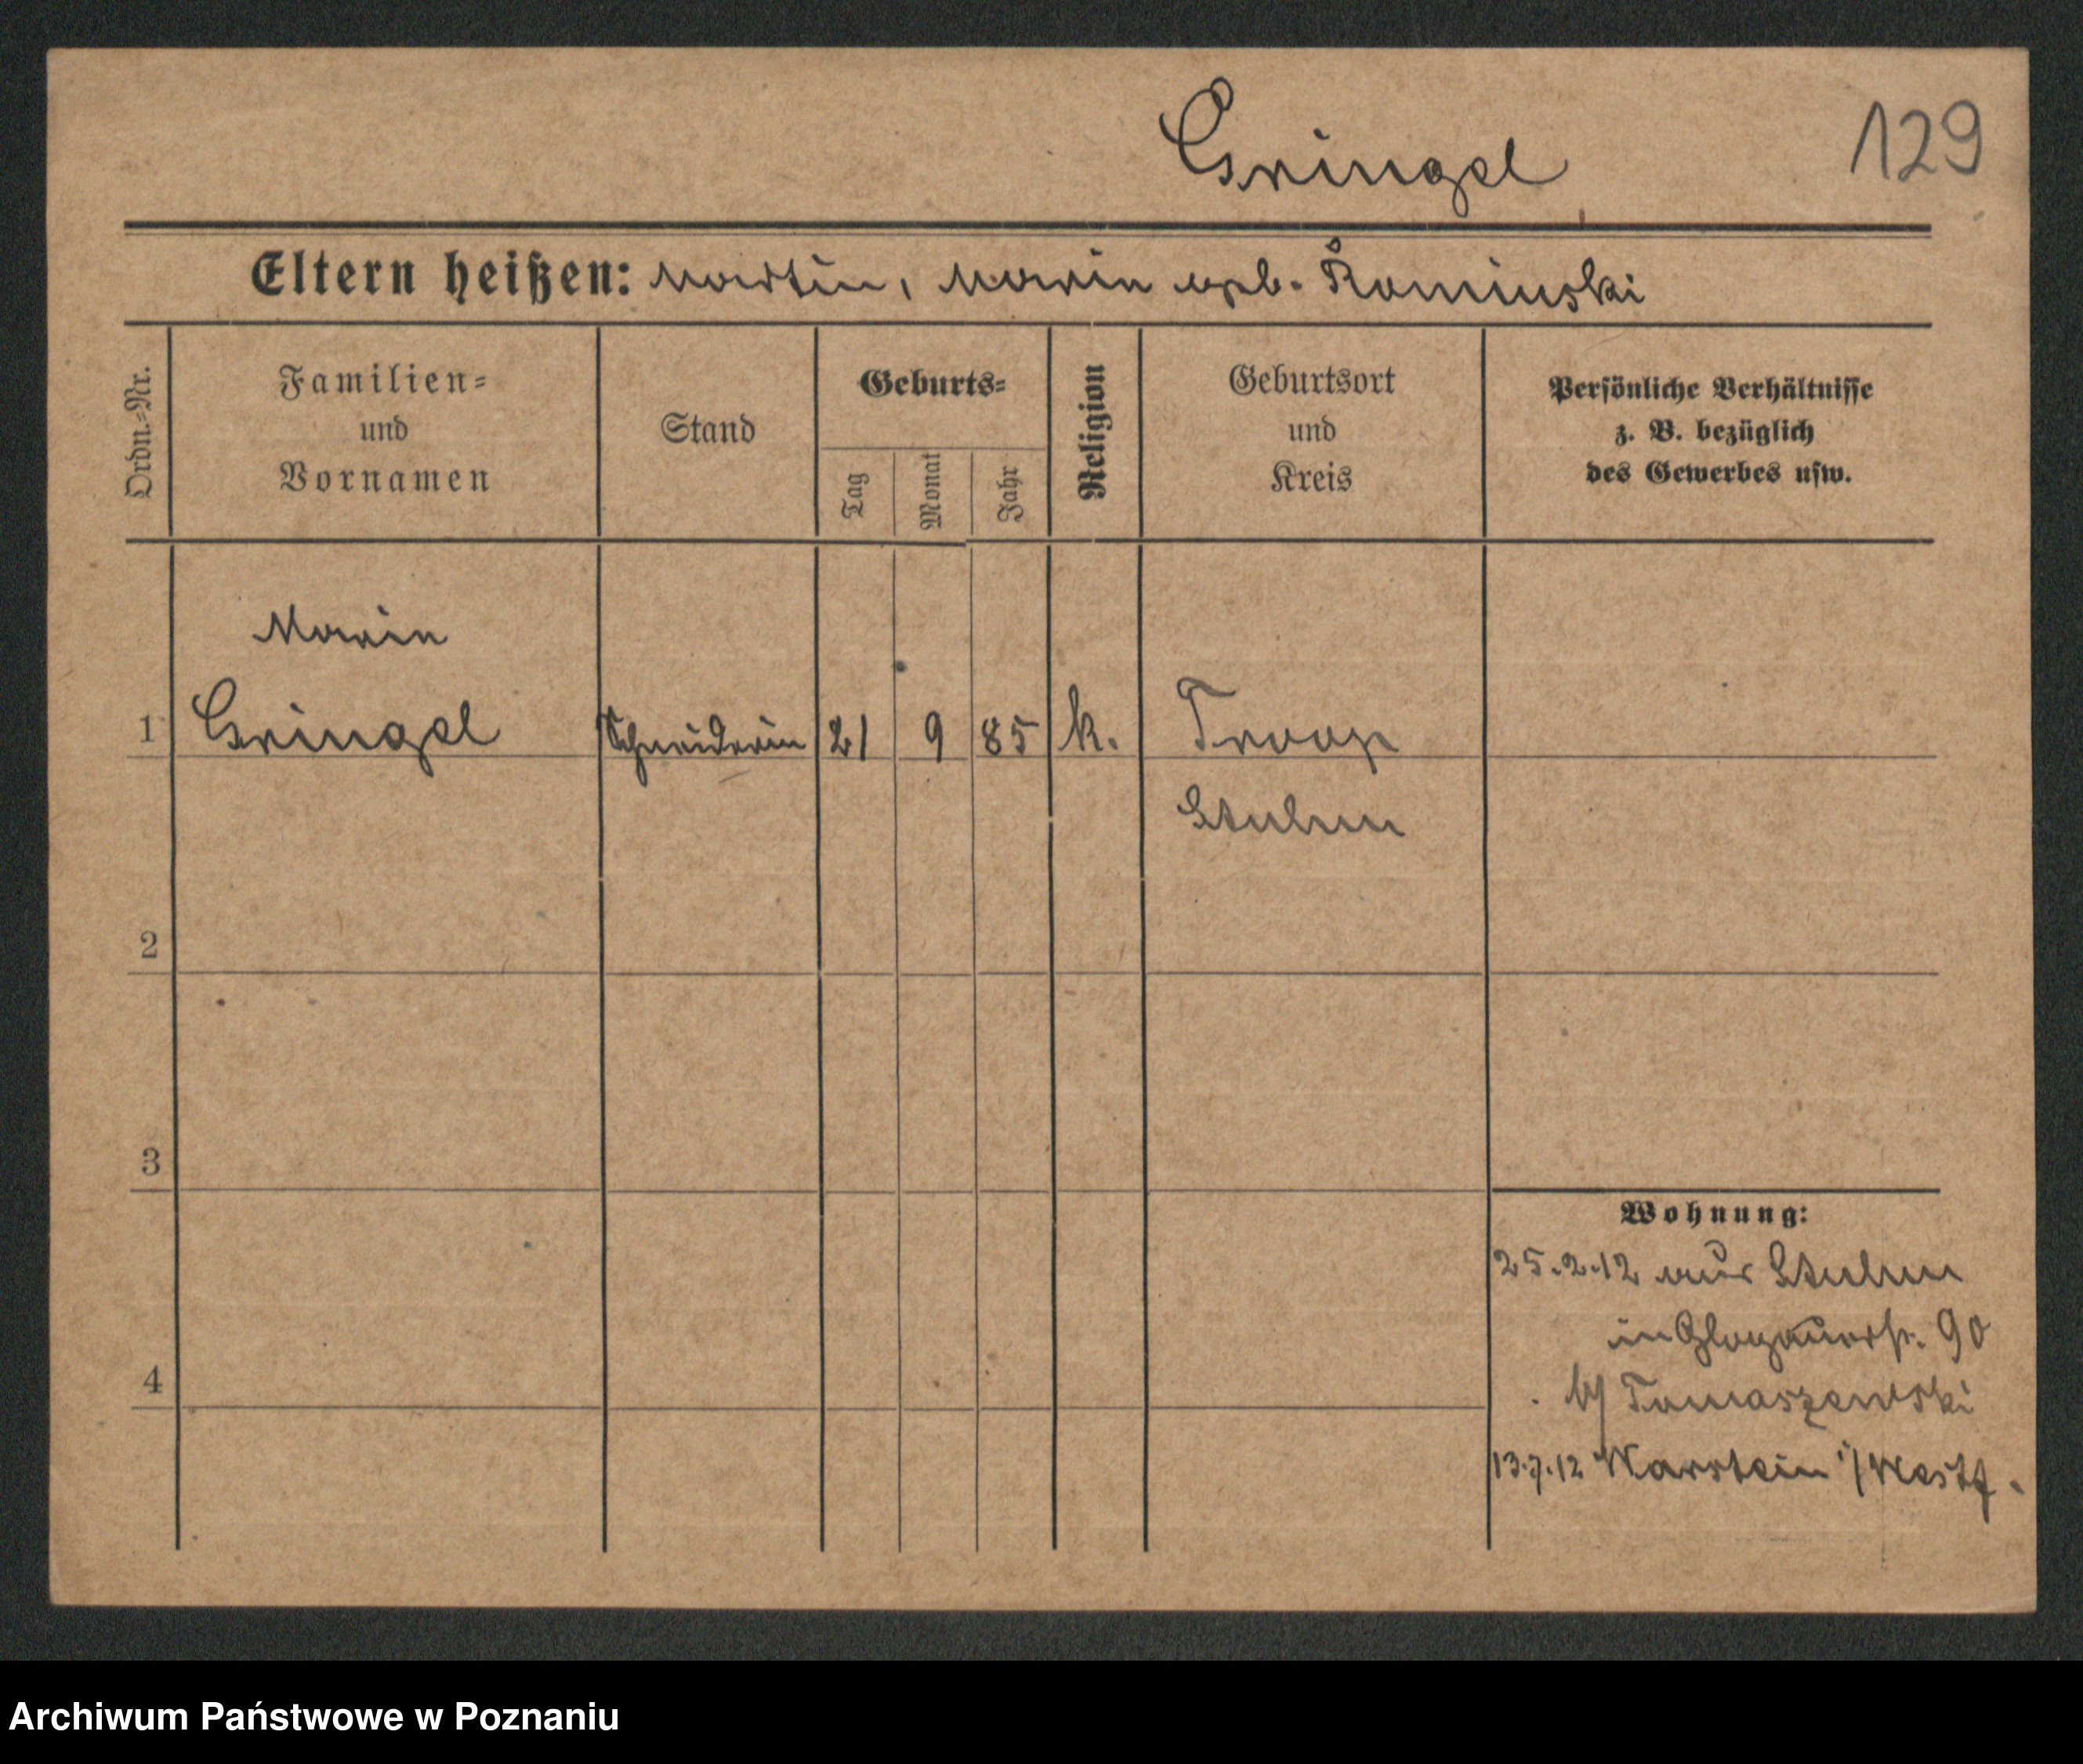 Gringel
129
Eltern heißen: Martin, Marie geb. Kominski
Ordn.=Nr.
Familien=
und
Vornamen
Stand
Geburts=
Tag
Monat
Jahr
Religion
Geburtsort
und
Kreis
Persönliche Verhältnisse
z. B. bezüglich
des Gewerbes usw.
Marie
1 Gringel Schneiderin 21 9 85 k. Troop
Stuhm
2
3
Wohnung:
25.2.12 aus Stuhm
in Glogauerstr. 90
4
b/ Tomaszewski
13.7.12 Warstein i/Westf.
Archiwum Państwowe w Poznaniu